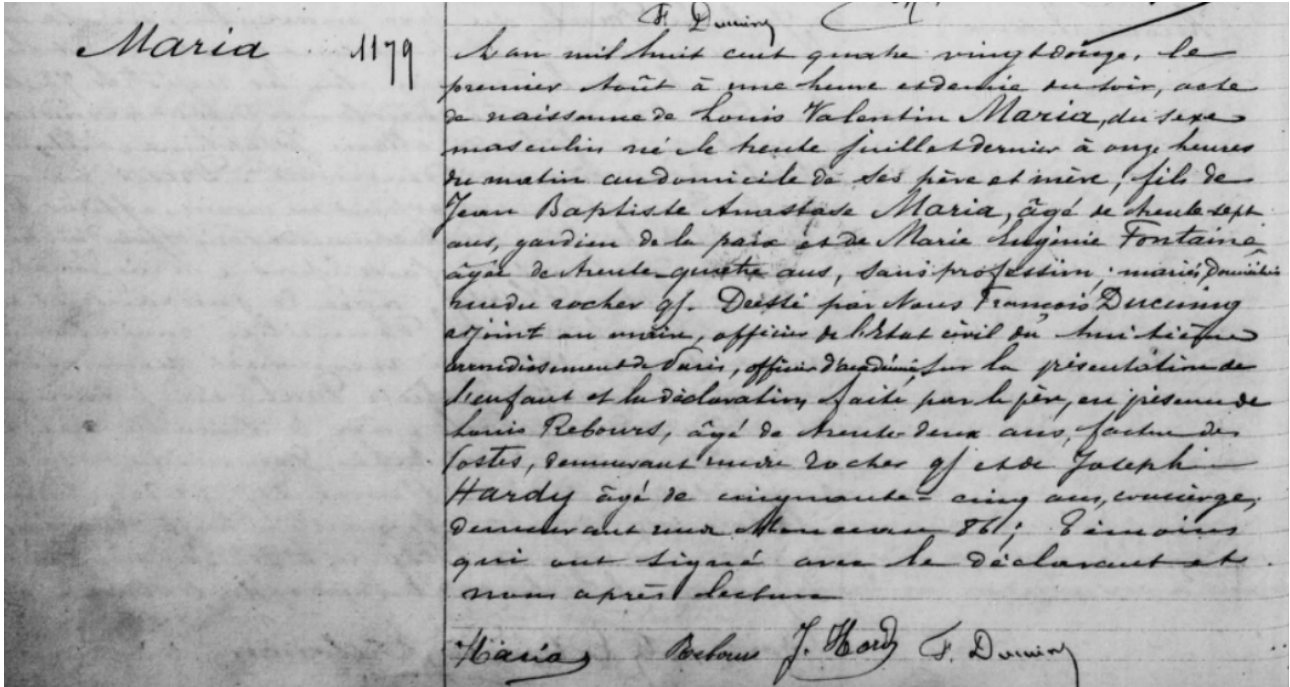 F. Ducuing
Maria 1179
L'an mil huit cent quatre vingt douze, le
premier Août à une heure et demie du soir, acte
de naissance de Louis Valentin Maria, du sexe
masculin né le trente Juillet dernier à onze heures
du matin au domicile de ses père et mère, fils de
Jean Baptiste Anastase Maria, âgé de trente sept
ans, gardien de la paix et de Marie Eugénie Fontaine
âgée de trente quatre ans, sans profession; mariés, domiciliés
rue du rocher 91. Dressé par Nous François Ducuing
adjoint au maire, officier de l'Etat civil du huitième
arrondissement de Paris, officier d'académie, sur la présentation de
l'enfant et la déclaration faite par le père, en présence de
Louis Rebours, âgé de trente deux ans, facteur des
Postes, demeurant rue du rocher 91 et de Joseph
Hardy âgé de cinquante-cinq ans, concierge,
demeurant rue 86; Témoins
qui ont signé avec le déclarant et
nous après lecture
Maria Rebours J. Hardy F. Ducuing